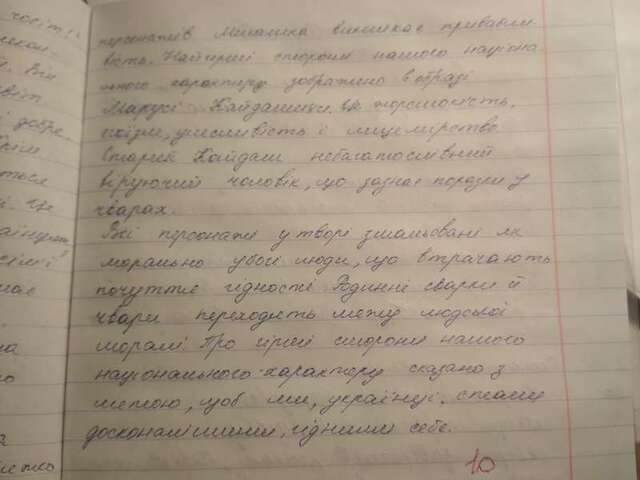 чість,
Він
світ
добре.
персонажів Мелашка викликає привабли
вість. Найгірші сторони нашого націона
льного характеру зображено в образі
Марусі Кайдашихи, як жорстокість,
егоїзм, улесливість і лицемірство.
Старий Кайдаш небагатослівний
віруючий чоловік, що зазнає поразки у
чварах.
Всі персонажі у творі змальовані як
морально убогі люди, що втрачають
почуття гідності. Родинні сварки й
чвари переходять межу людської
моралі. Про гірші сторони нашого
національного характеру сказано з
метою, щоб ми, українці, стали
досконалішими, гідними себе.
10